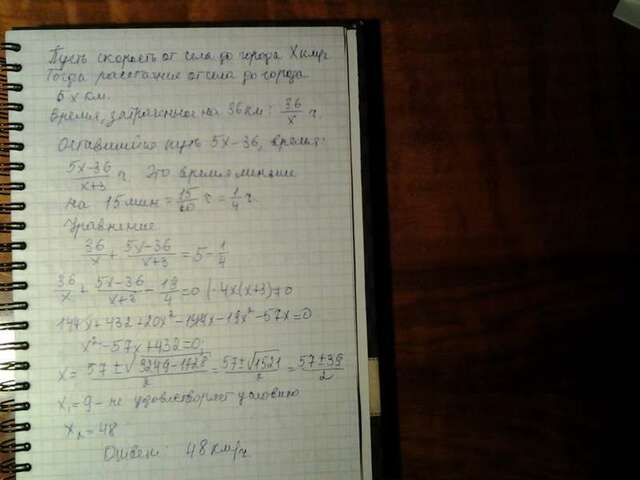 Пусть скорость от села до города X км/ч
Тогда расстояние от села до города
5x км.
Время, затраченное на 36 км: 36/x ч.
Оставшийся путь 5x-36, время:
(5x-36)/(x+3) ч Это время меньше
на 15 мин = 15/60 ч = 1/4 ч
Уравнение
36/x + (5x-36)/(x+3) = 5 - 1/4
36/x + (5x-36)/(x+3) - 19/4 = 0 | ·4x(x+3) ≠ 0
144x + 432 + 20x² - 144x - 19x² - 57x = 0
x² - 57x + 432 = 0;
x = (57 ± √(3249-1728))/2 = (57 ± √1521)/2 = (57 ± 39)/2
x₁ = 9 - не удовлетворяет условию
x₂ = 48
Ответ: 48 км/ч